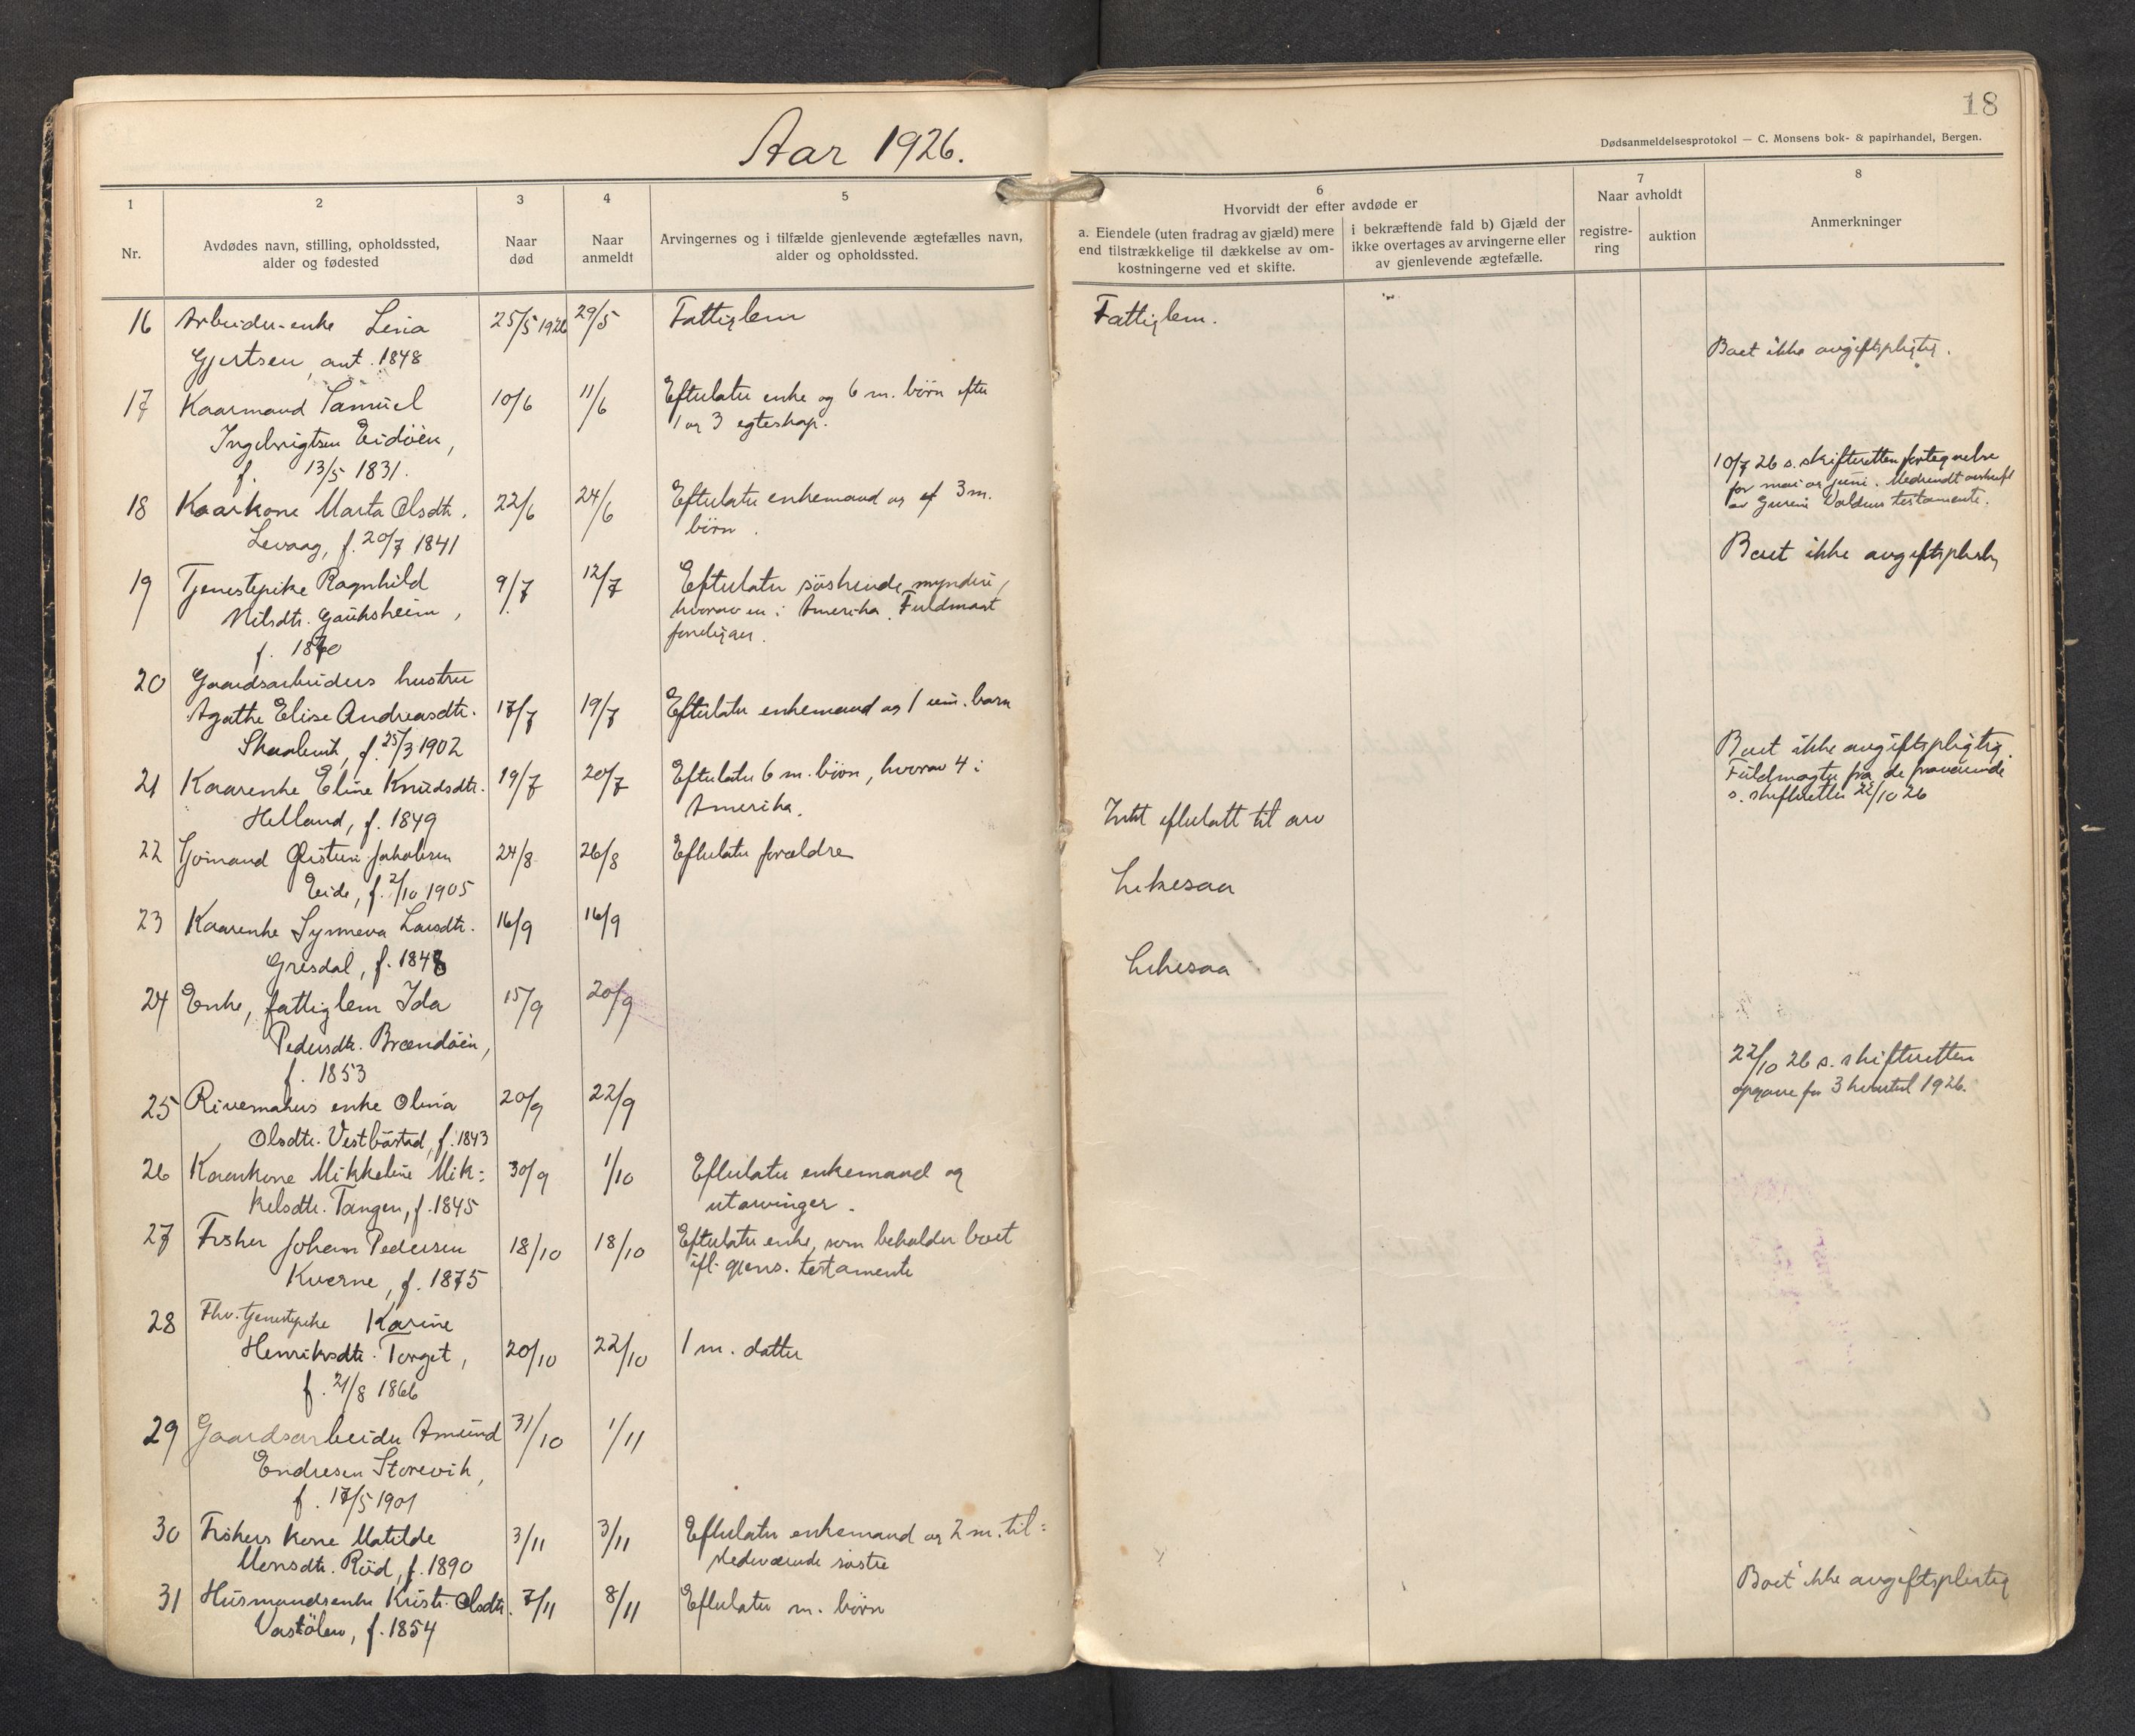 Aar 1926.
18
Dødsanmeldelsesprotokol — C. Monsens bok- & papirhandel, Bergen.
1
Nr.
2
Avdødes navn, stilling, opholdssted,
alder og fødested
3
Naar
død
4
Naar
anmeldt
5
Arvingernes og i tilfælde gjenlevende ægtefælles navn,
alder og opholdssted.
6
Hvorvidt der efter avdøde er
a. Eiendele (uten fradrag av gjæld) mere
end tilstrækkelige til dækkelse av om-
kostningerne ved et skifte.
i bekræftende fald b) Gjæld der
ikke overtages av arvingerne eller
av gjenlevende ægtefælle.
7
Naar avholdt
registre-
ring
auktion
8
Anmerkninger
16 Arbeider-enke Lina 25/5 1926 29/5 Fattiglem Fattiglem.
Gjertsen, ant. 1848 Boet ikke avgiftspligtig.
17 Kaarmand Samuel 10/6 11/6 Efterlater enke og 6 m. børn efter
Ingebrigtsen Eidøen, 1 og 3 egteskap.
f. 13/5 1831. 10/7 26 s. skifteretten fortegnelse
for mai og juni. Medsendt avskrift
av Gurine Valdens testamente.
18 Kaarkone Marta Olsdtr. 22/6 24/6 Efterlater enkemand og 3 m.
Levaag, f. 20/7 1841 børn. Boet ikke avgiftspligtig
19 Tjenestepike Ragnhild 9/7 12/7 Efterlater søskende, myndige,
Nilsdtr. Gauksheim, hvorav en i Amerika. Fuldmagt
f. 1860 foreligger.
20 Gaardsarbeiders hustru
Agathe Elise Andreasdtr. 17/7 19/7 Efterlater enkemand og 1 um. barn
f. 25/3 1902 Boet ikke avgiftspligtig.
21 Kaarenke Eline Knudsdtr. 19/7 20/7 Efterlater 6 m. børn, hvorav 4 i
Helland, f. 1849 Amerika. Intet efterlatt til arv
Fuldmagter fra de fraværende
s. skifteretten 22/10 26
22 Jakobsen 24/8 26/8 Efterlater forældre
Eide, f. 2/10 1905 Likesaa
23 Kaarenke Synneva Larsdtr. 16/9 16/9
Grisdal, f. 1848 Likesaa
24 Enke, fattiglem Ida 15/9 20/9
Pedersdtr. Brændøen,
f. 1853 22/10 26 s. skifteretten
opgave for 3 kvartal 1926.
25 Rivemakers enke Olina 20/9 22/9
Olsdtr. Vestbøstad, f. 1843
26 Kaarkone Mikkeline Mik- 30/9 1/10 Efterlater enkemand og
kelsdtr. Tangen, f. 1845 utarvinger.
27 Fisker Johan Pedersen 18/10 18/10 Efterlater enke, som beholder boet
Kverne, f. 1875 ifl. gjens. testamente
28 Fhv. tjenestepike Karine
Henriksdtr. Torget, 20/10 22/10 1 m. datter
f. 21/8 1866
29 Gaardsarbeider Amund 31/10 1/11
Endresen Storevik,
f. 17/5 1901
30 Fiskers kone Matilde 3/11 3/11 Efterlater enkemand og 2 m. til-
Monsdtr. Röd, f. 1890 stedeværende søstre
31 Husmandsenke Kristi Olsdtr. 7/11 8/11 Efterlater m. børn Boet ikke avgiftspligtig
f. 1854